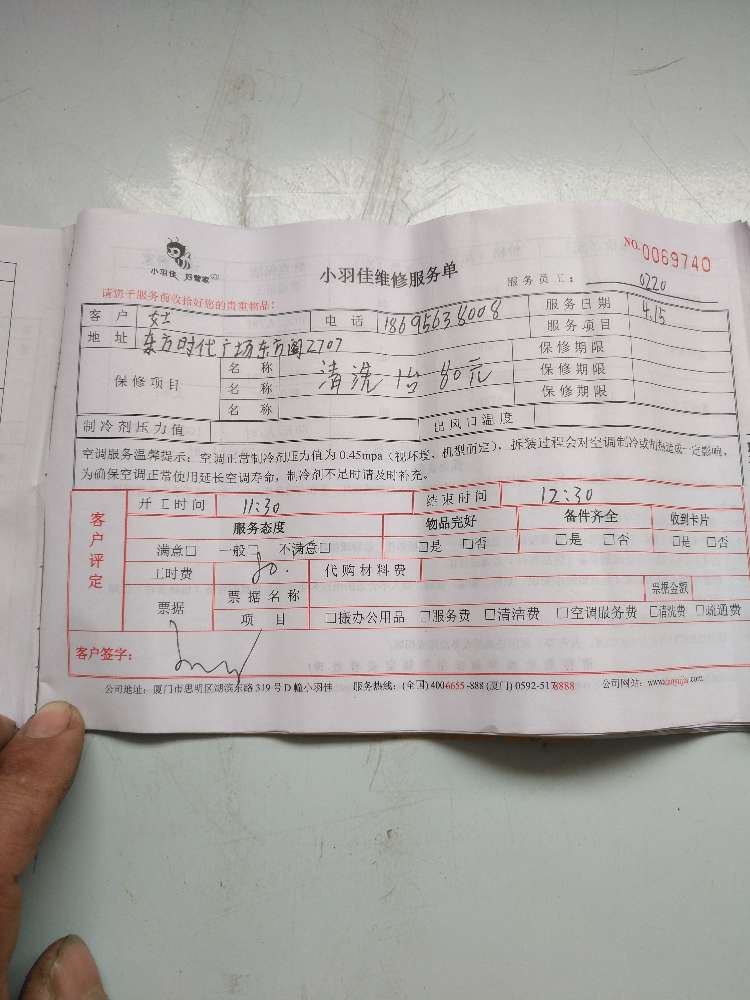 小羽佳 好管家
小羽佳维修服务单
NO.0069740
服务员工: 0220
请您于服务前收拾好您的贵重物品:
客户 女士 电话 18695638008 服务日期 4.15
地址 东方时代广场东方阁2707 服务项目
保修项目 名称 清洗 1台 80元 保修期限
名称 保修期限
名称 保修期限
制冷剂压力值 出风口温度
空调服务温馨提示: 空调正常制冷剂压力值为 0.45mpa (视环境、机型而定), 拆装过程会对空调制冷或制热造成一定影响,
为确保空调正常使用延长空调寿命, 制冷剂不足时请及时补充。
客户评定
开工时间 11:30 结束时间 12:30
服务态度 物品完好 备件齐全 收到卡片
满意□ 一般□ 不满意□ □是 □否 □是 □否 □是 □否
工时费 80. 代购材料费
票据 票据名称 票据金额
项目 □搬办公用品 □服务费 □清洁费 □空调服务费 □清洗费 □疏通费
客户签字:
公司地址: 厦门市思明区湖滨东路 319 号 D 幢小羽佳 服务热线: (全国) 4006655-888 (厦门) 0592-5178888 公司网站: